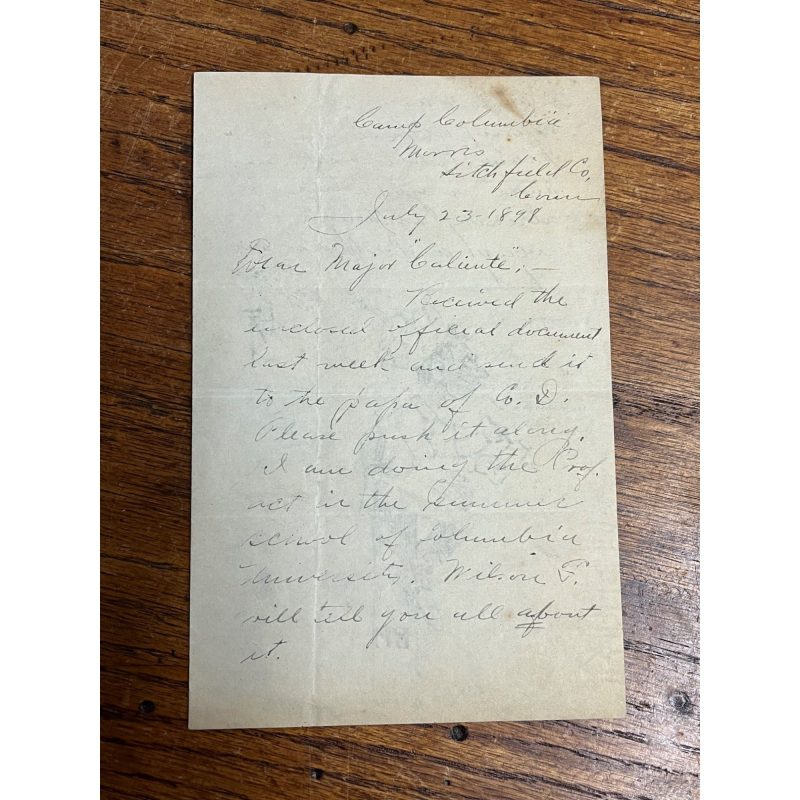 Camp Columbia
Morris
Litchfield Co,
Conn
July 23-1899
Dear Major "Caliente",—
Received the
enclosed official document
last week and send it
to the papa of Co. D.
Please push it along.
I am doing the Prof.
act in the summer
school of Columbia
University. Wilson F.
will tell you all about
it.